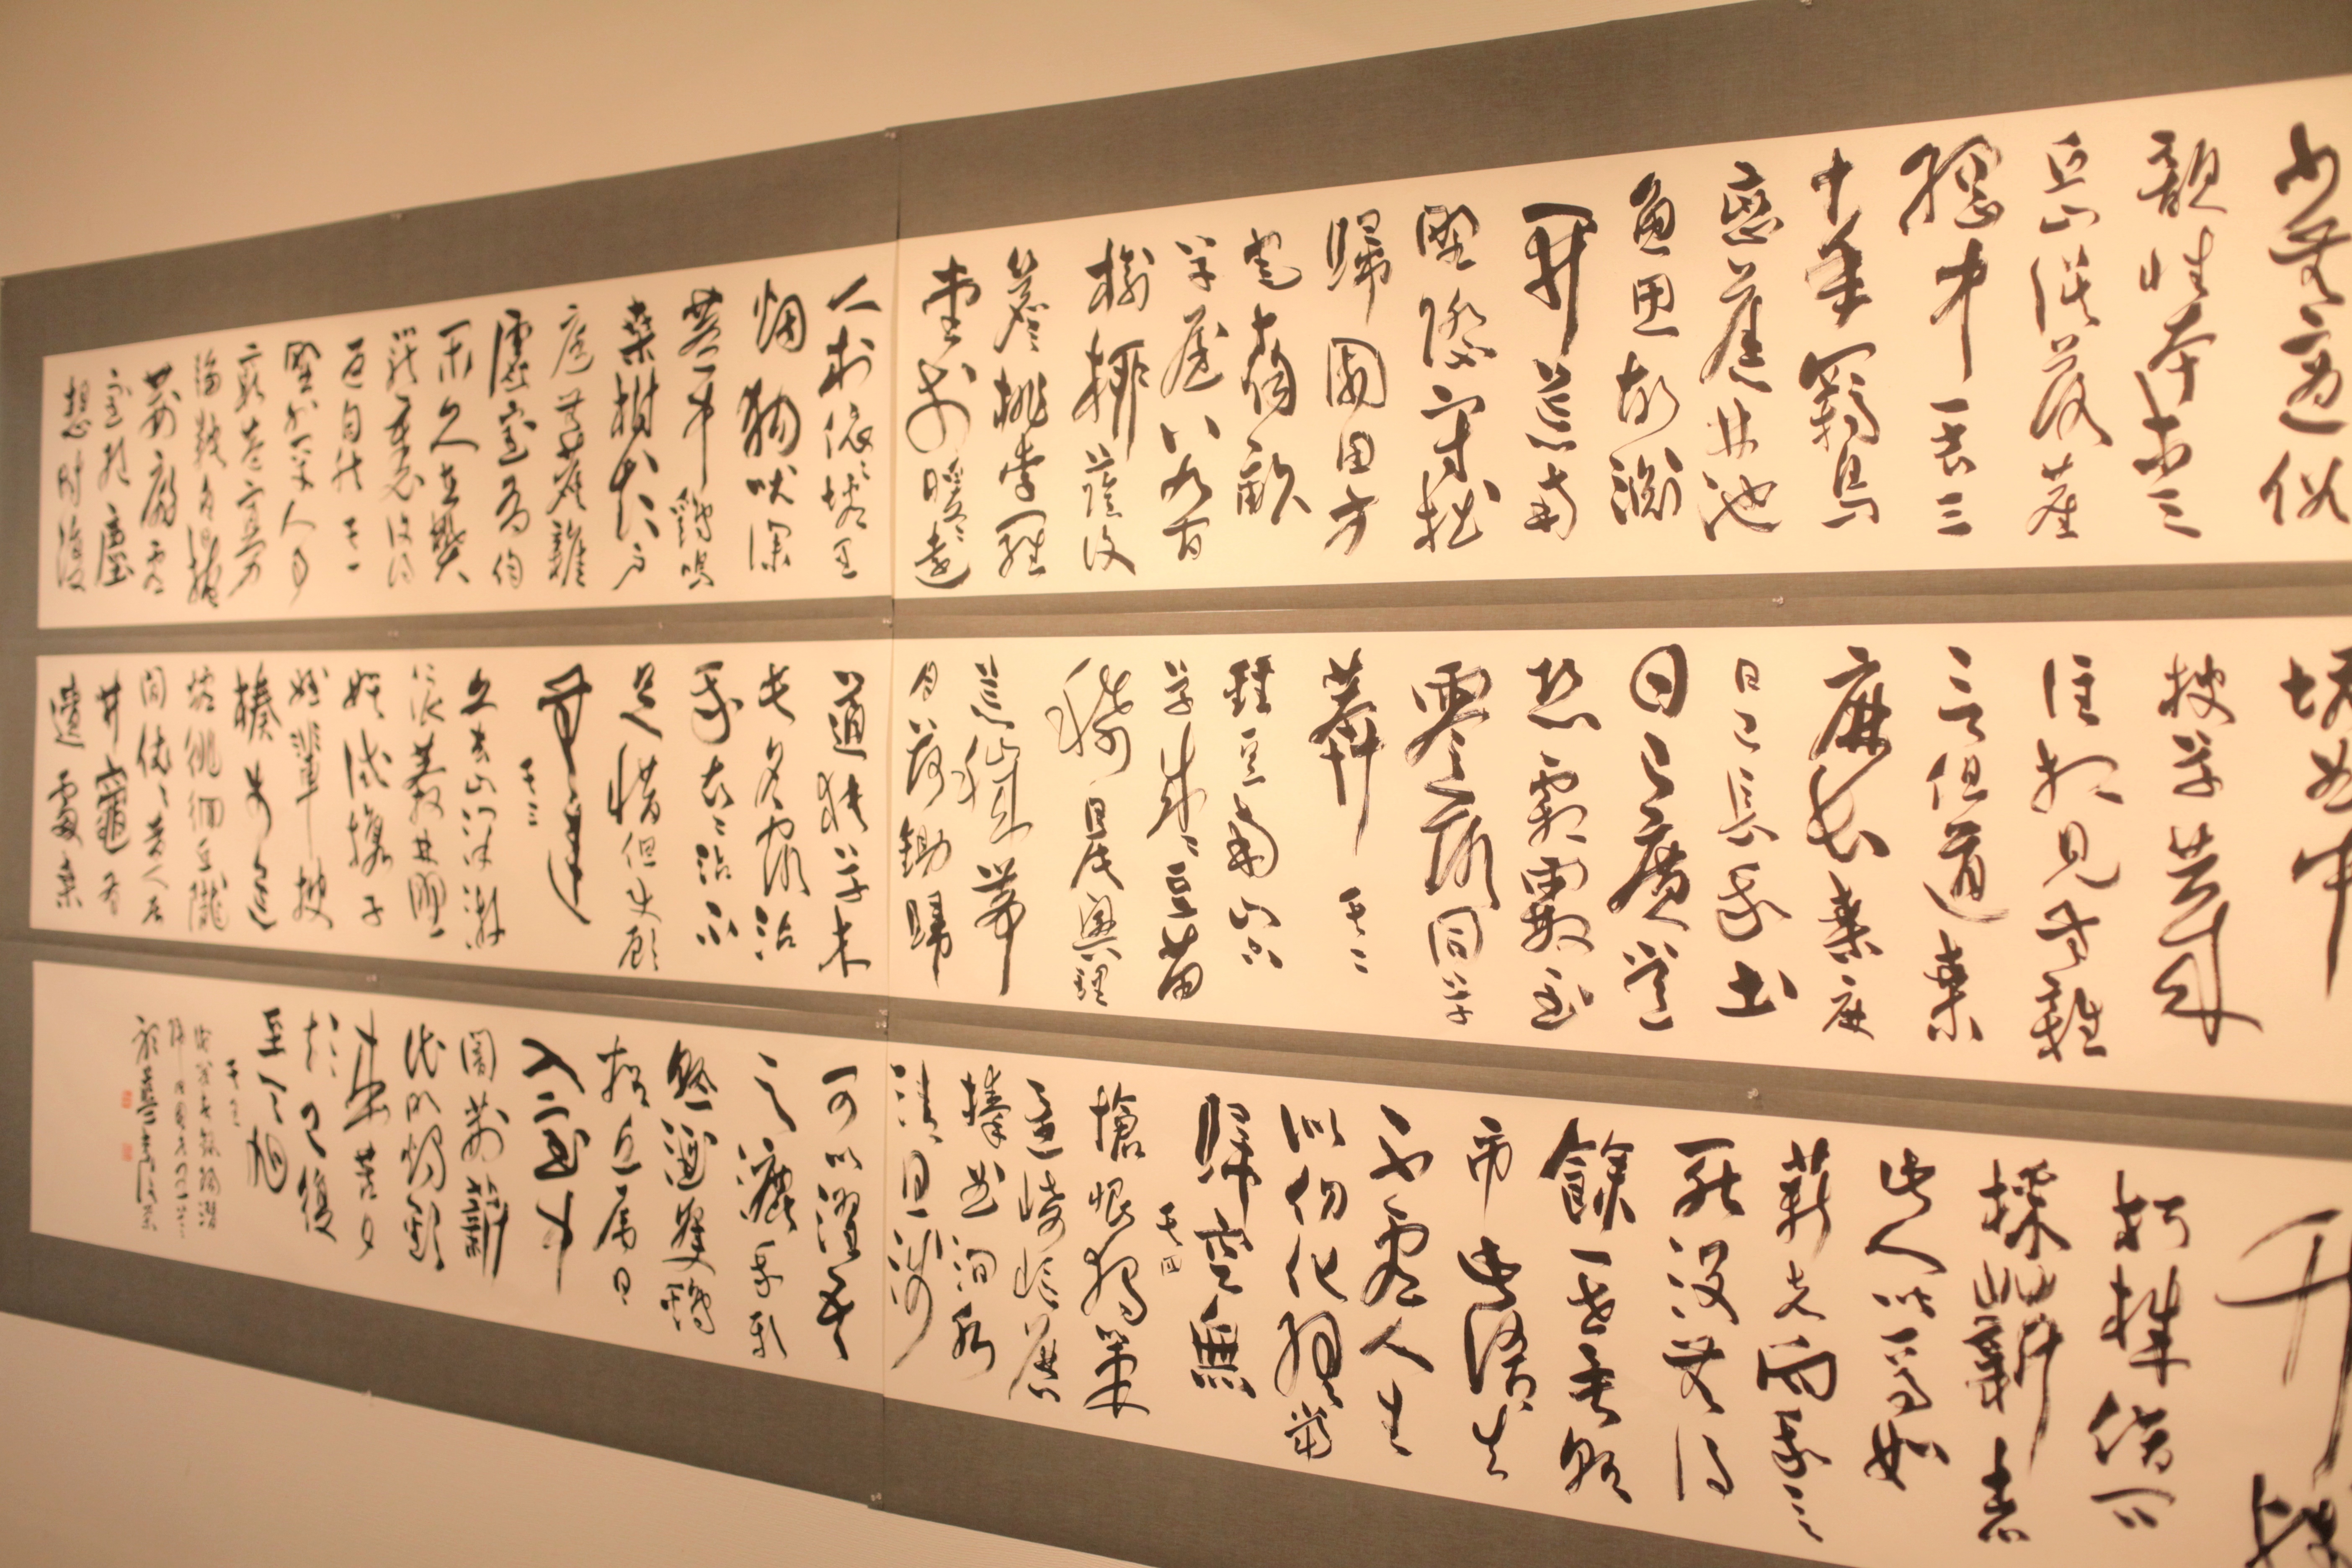 少無適俗
韻性本愛
丘山誤落塵
網中一去三
十年羈鳥
戀舊林池
魚思故淵
開荒南
野際守拙
歸園田方
宅十餘畝
草屋八九間
榆柳蔭後
簷桃李羅
堂前曖曖遠
人村依依墟里
烟狗吠深
巷中雞鳴
桑樹顛戶
庭無塵雜
虛室有餘
閒久在樊
籠裏復得
返自然其一
野外罕人事
窮巷寡輪
鞅白日掩
荊扉虛
室絕塵
想時復
墟曲中
披草共來
往相見無雜
言但道桑
麻長桑麻
日已長我土
日已廣常
恐霜霰至
零落同草
莽其二
種豆南山下
草盛豆苗
稀晨興理
荒穢帶
月荷鋤歸
道狹草木
長夕露沾
我衣衣沾不
足惜但使願
無違
其三
久去山澤游
浪莽林野
娛試攜子
姪輩披
榛步荒
墟徘徊丘隴
間依依昔人居
井竈有
遺處桑
竹殘
朽株借問
採薪者
此人皆焉如
薪者向我言
死沒無復
餘一世異朝
市此語真
不虛人生
似幻化終當
歸空無
其四
悵恨獨策
還崎嶇歷
榛曲澗水
清且淺
可以濯吾
漉我新
熟酒隻雞
招近局日
入室中
闇荊薪
代明燭歡
來苦夕
短已復
至天旭
其五